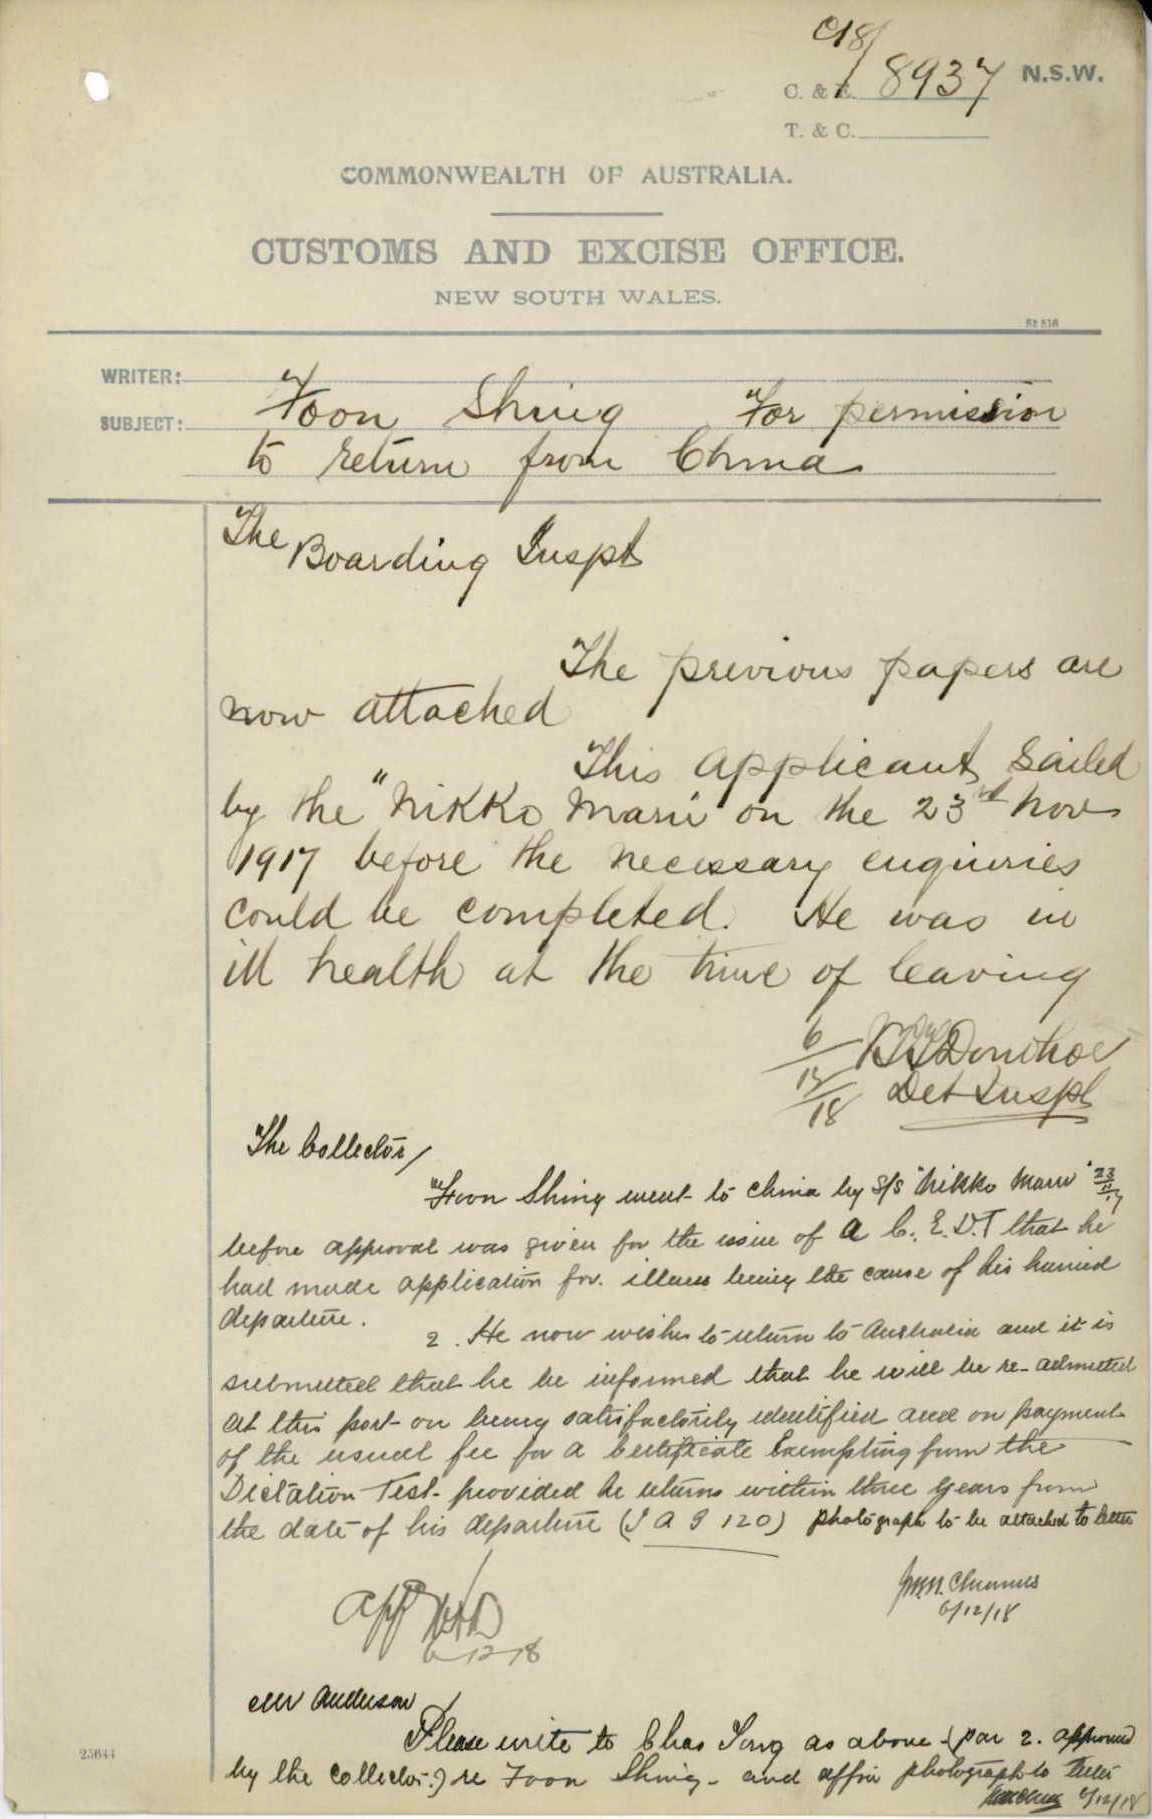 C18/
C. & E. 8937 N.S.W.
T. & C.
COMMONWEALTH OF AUSTRALIA.
CUSTOMS AND EXCISE OFFICE.
NEW SOUTH WALES.
WRITER:
SUBJECT: Foon Shing For permission
to return from China
The Boarding Inspt
The previous papers are
now attached
This applicant sailed
by the "Nikko Maru" on the 23rd Nov
1917 before the necessary enquiries
could be completed. He was in
ill health at the time of leaving
6/12/18 Donohoe
Det Inspt
The Collector/
Foon Shing went to China by s/s "Nikko Maru" 23/11/17
before approval was given for the issue of a C. E. D. T that he
had made application for. illness being the cause of his hurried
departure.
2. He now wishes to return to Australia and it is
submitted that he be informed that he will be re-admitted
at this port on being satisfactorily identified and on payment
of the usual fee for a Certificate Exempting from the
Dictation Test provided he returns within three years from
the date of his departure (I A G 120) photograph to be attached to letter
6/12/18
App
6-12-18
Mr Anderson
Please write to Chas Song as above (par 2. approved
by the Collector.) re Foon Shing - and affix photograph to letter
6/12/18
23644